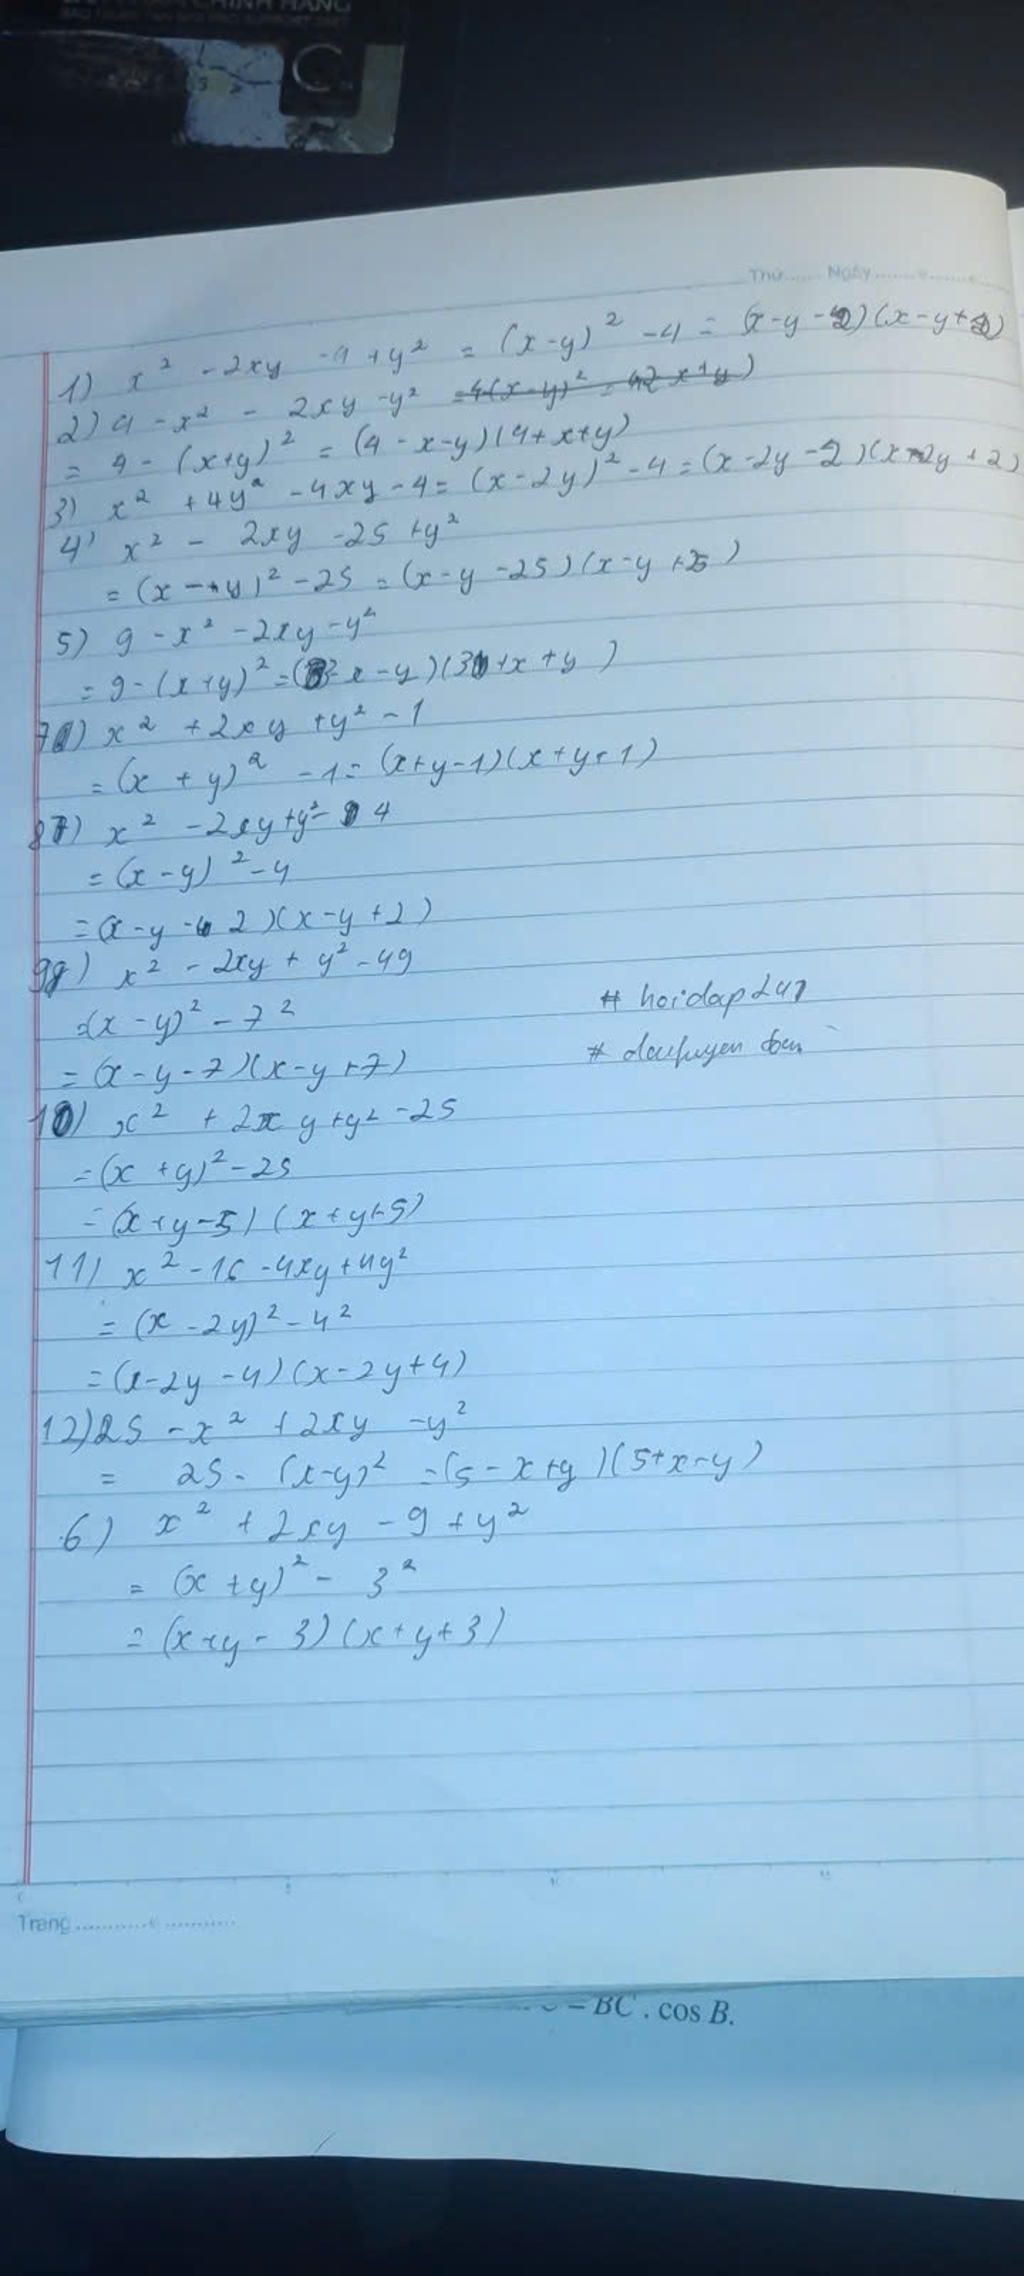 CHÍNH HÃNG
C
Thứ...... Ngày
1) x² - 2xy - 4 + y² = (x-y)² - 4 = (x-y-2)(x-y+2)
2) 4 - x² - 2xy - y²
= 4 - (x+y)² = (4-x-y)(4+x+y)
3) x² + 4y² - 4xy - 4 = (x-2y)² - 4 = (x-2y-2)(x-2y+2)
4) x² - 2xy - 25 + y²
= (x-y)² - 25 = (x-y-25)(x-y+25)
5) 9 - x² - 2xy - y²
= 9 - (x+y)² = (3-x-y)(3+x+y)
7) x² + 2xy + y² - 1
= (x+y)² - 1 = (x+y-1)(x+y+1)
8) x² - 2xy + y² - 4
= (x-y)² - 4
= (x-y-2)(x-y+2)
9) x² - 2xy + y² - 49
= (x-y)² - 7²
# hoidap247
= (x-y-7)(x-y+7)
10) x² + 2xy + y² - 25
= (x+y)² - 25
= (x+y-5)(x+y+5)
11) x² - 16 - 4xy + 4y²
= (x-2y)² - 4²
= (x-2y-4)(x-2y+4)
12) 25 - x² + 2xy - y²
= 25 - (x-y)² = (5-x+y)(5+x-y)
6) x² + 2xy - 9 + y²
= (x+y)² - 3²
= (x+y-3)(x+y+3)
Trang
= BC . cos B.